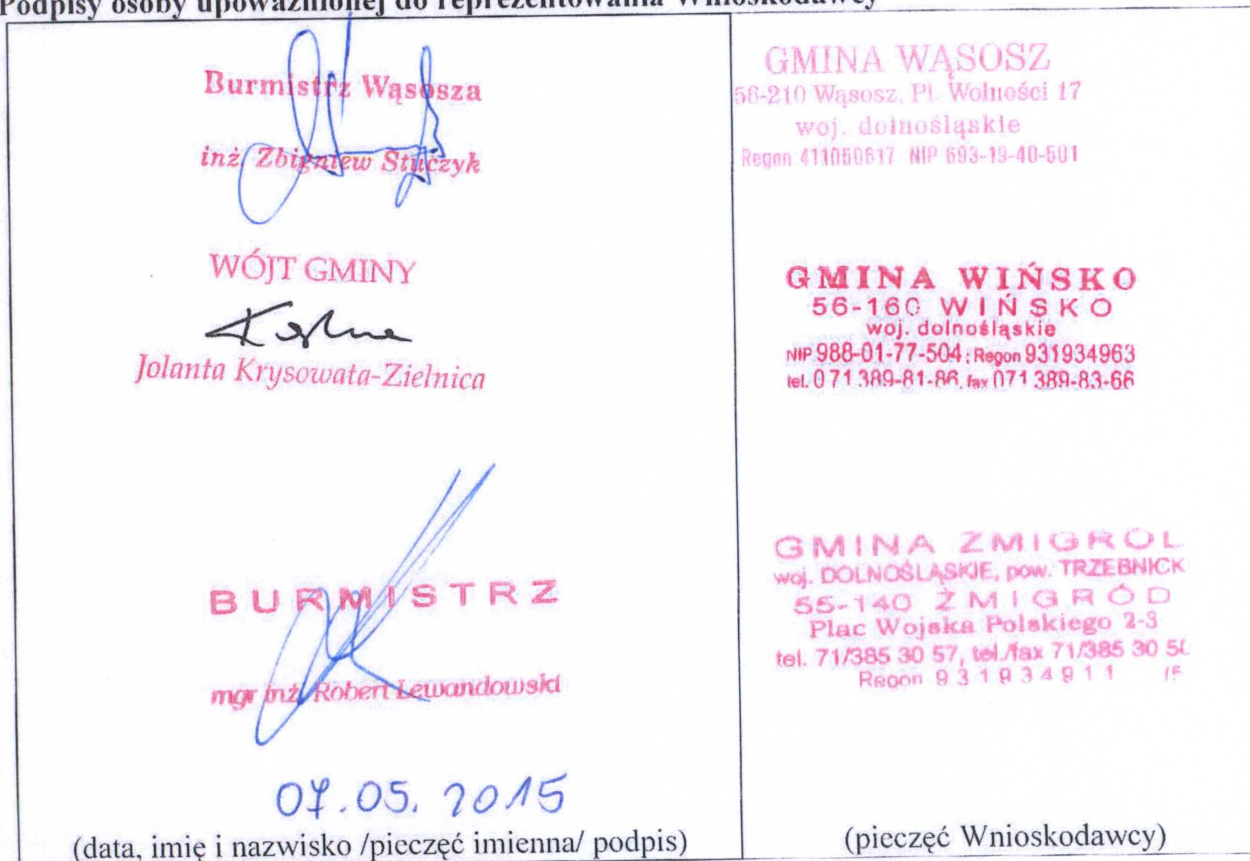 Podpisy osoby upoważnionej do reprezentowania Wnioskodawcy
Burmistrz Wąsosza
inż. Zbigniew Stuczyk
WÓJT GMINY
Jolanta Krysowata-Zielnica
BURMISTRZ
mgr inż. Robert Lewandowski
07.05.2015
(data, imię i nazwisko /pieczęć imienna/ podpis)
GMINA WĄSOSZ
56-210 Wąsosz, Pl. Wolności 17
woj. dolnośląskie
Regon 411050617 NIP 693-19-40-501
GMINA WIŃSKO
56-160 WIŃSKO
woj. dolnośląskie
NIP 988-01-77-504; Regon 931934963
tel. 071 389-81-86, fax 071 389-83-66
GMINA ŻMIGRÓD
woj. DOLNOŚLĄSKIE, pow. TRZEBNICK
55-140 ŻMIGRÓD
Plac Wojska Polskiego 2-3
tel. 71/385 30 57, tel./fax 71/385 30 5
Regon 931934911
(pieczęć Wnioskodawcy)